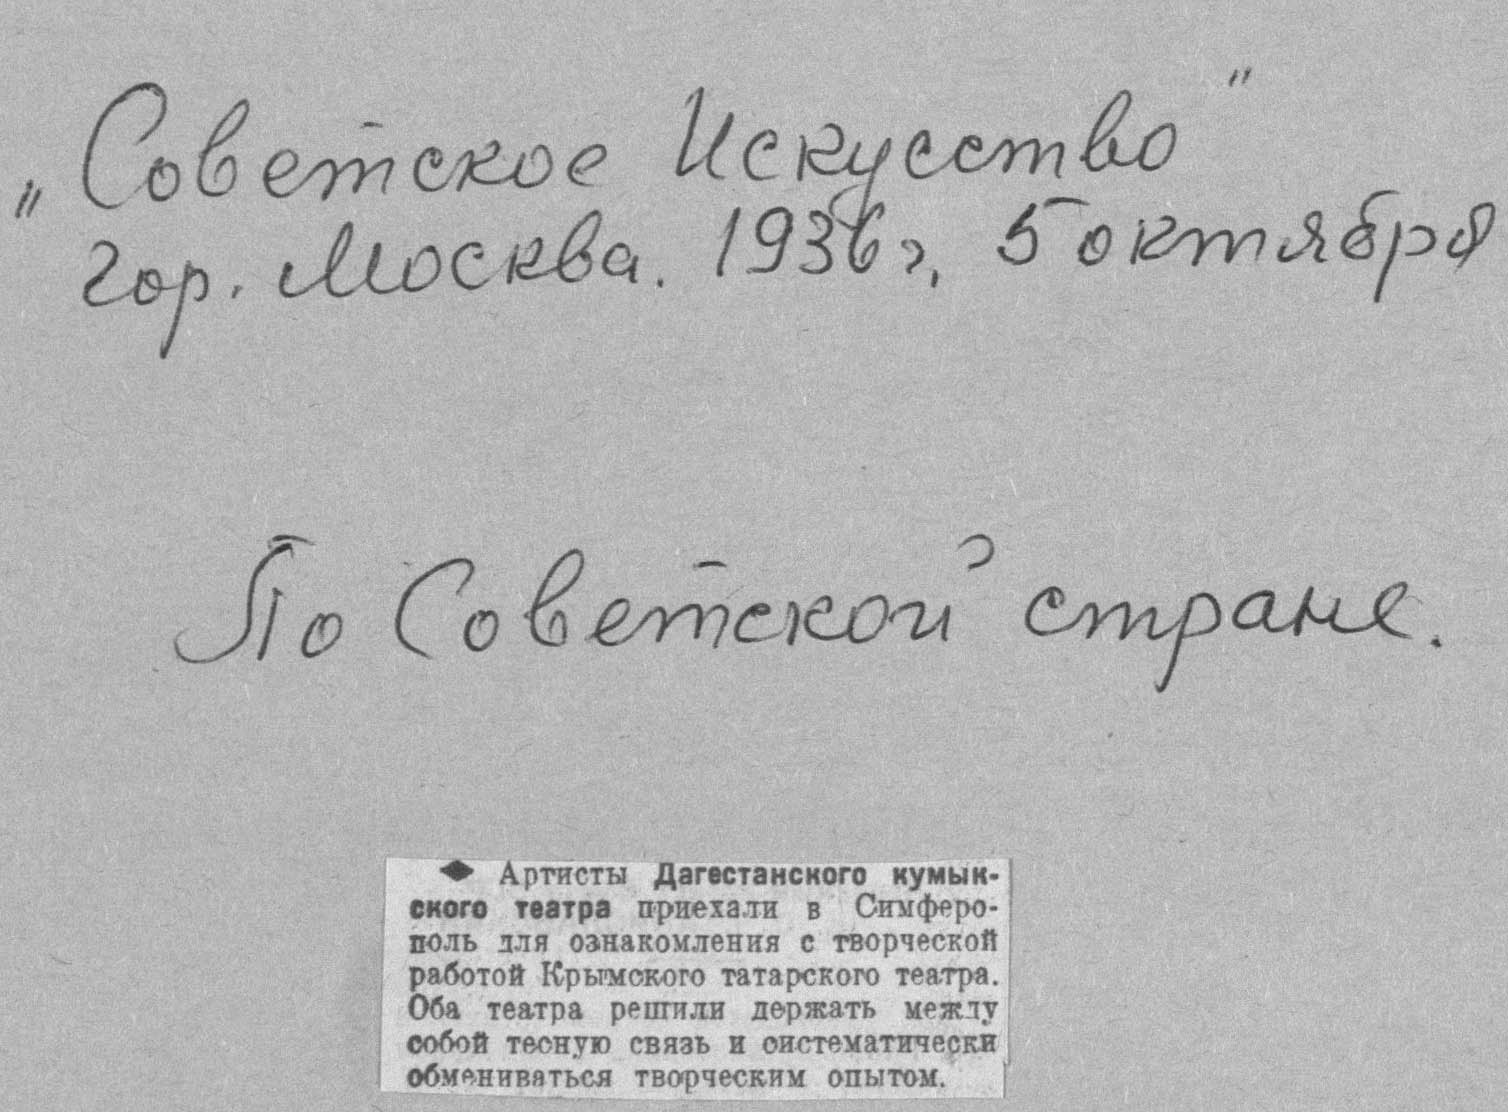 „Советское Искусство"
гор. Москва. 1936 г, 5 октября
По Советской стране.
◆ Артисты Дагестанского кумык-
ского театра приехали в Симферо-
поль для ознакомления с творческой
работой Крымского татарского театра.
Оба театра решили держать между
собой тесную связь и систематически
обмениваться творческим опытом.